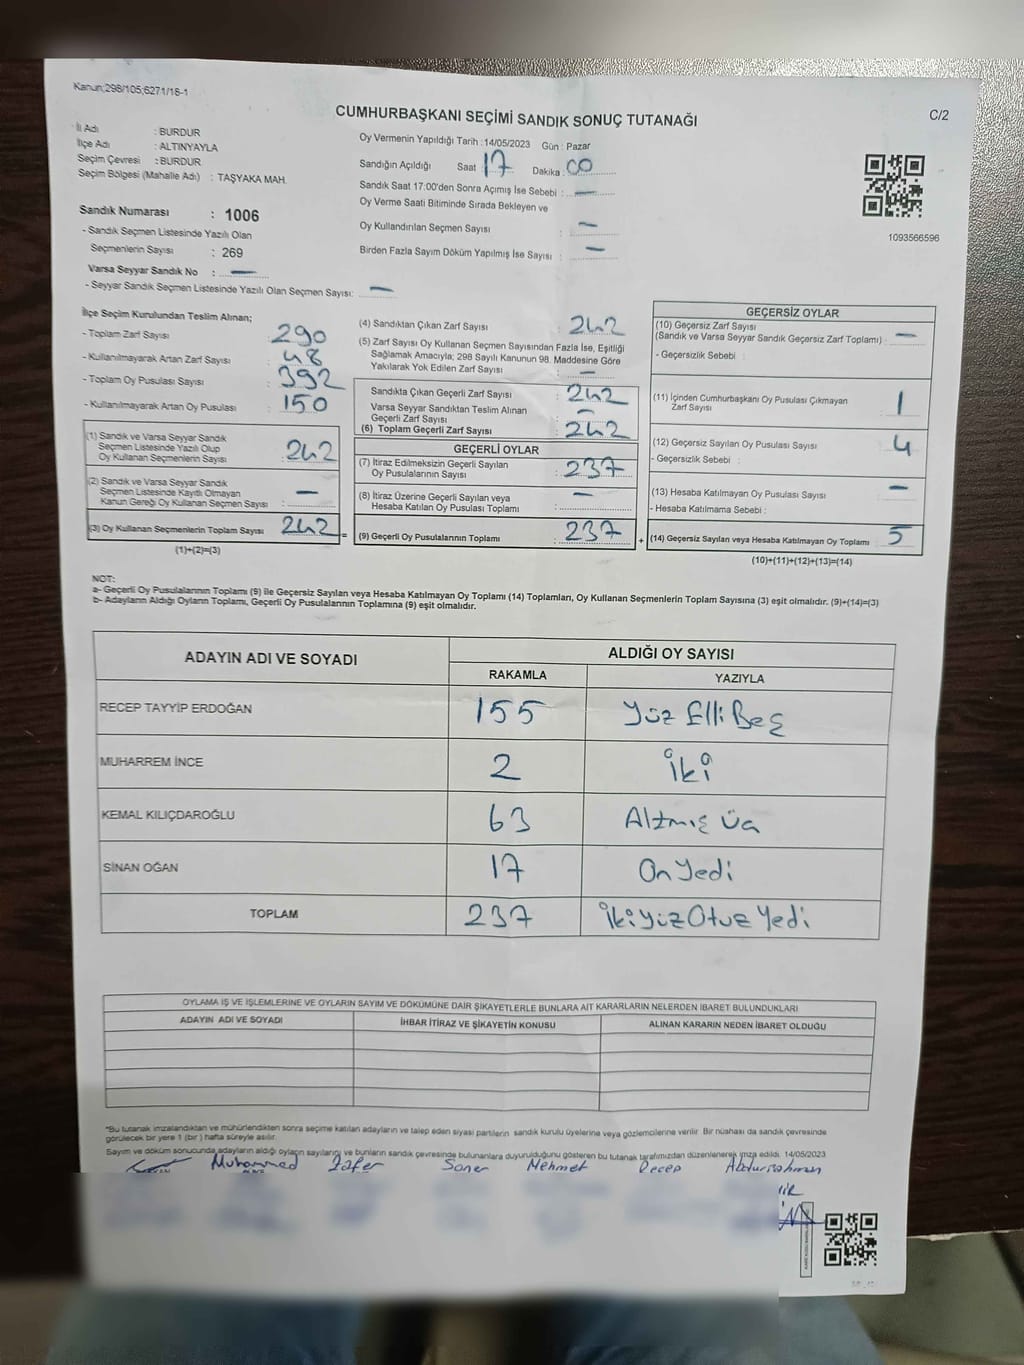 Kanun;298/105;6271/18-1
C/2
CUMHURBAŞKANI SEÇİMİ SANDIK SONUÇ TUTANAĞI
İl Adı : BURDUR
İlçe Adı : ALTINYAYLA
Seçim Çevresi : BURDUR
Seçim Bölgesi (Mahalle Adı) : TAŞYAKA MAH.
Sandık Numarası : 1006
- Sandık Seçmen Listesinde Yazılı Olan
Seçmenlerin Sayısı : 269
Varsa Seyyar Sandık No : —
- Seyyar Sandık Seçmen Listesinde Yazılı Olan Seçmen Sayısı: —
Oy Vermenin Yapıldığı Tarih : 14/05/2023 Gün : Pazar
Sandığın Açıldığı Saat : 17 Dakika : 00
Sandık Saat 17:00'den Sonra Açımış İse Sebebi : —
Oy Verme Saati Bitiminde Sırada Bekleyen ve
Oy Kullandırılan Seçmen Sayısı : —
Birden Fazla Sayım Döküm Yapılmış İse Sayısı : —
1093566596
İlçe Seçim Kurulundan Teslim Alınan;
- Toplam Zarf Sayısı : 290
- Kullanılmayarak Artan Zarf Sayısı : 48
- Toplam Oy Pusulası Sayısı : 392
- Kullanılmayarak Artan Oy Pusulası : 150
(1) Sandık ve Varsa Seyyar Sandık
Seçmen Listesinde Yazılı Olup
Oy Kullanan Seçmenlerin Sayısı : 242
(2) Sandık ve Varsa Seyyar Sandık
Seçmen Listesinde Kayıtlı Olmayan
Kanun Gereği Oy Kullanan Seçmen Sayısı : —
(3) Oy Kullanan Seçmenlerin Toplam Sayısı : 242 =
(1)+(2)=(3)
(4) Sandıktan Çıkan Zarf Sayısı : 242
(5) Zarf Sayısı Oy Kullanan Seçmen Sayısından Fazla İse, Eşitliği
Sağlamak Amacıyla; 298 Sayılı Kanunun 98. Maddesine Göre
Yakılarak Yok Edilen Zarf Sayısı : —
Sandıkta Çıkan Geçerli Zarf Sayısı : 242
Varsa Seyyar Sandıktan Teslim Alınan
Geçerli Zarf Sayısı : —
(6) Toplam Geçerli Zarf Sayısı : 242
GEÇERLİ OYLAR
(7) İtiraz Edilmeksizin Geçerli Sayılan
Oy Pusulalarının Sayısı : 237
(8) İtiraz Üzerine Geçerli Sayılan veya
Hesaba Katılan Oy Pusulası Toplamı : —
(9) Geçerli Oy Pusulalarının Toplamı : 237 +
GEÇERSİZ OYLAR
(10) Geçersiz Zarf Sayısı
(Sandık ve Varsa Seyyar Sandık Geçersiz Zarf Toplamı) : —
- Geçersizlik Sebebi :
(11) İçinden Cumhurbaşkanı Oy Pusulası Çıkmayan
Zarf Sayısı : 1
(12) Geçersiz Sayılan Oy Pusulası Sayısı : 4
- Geçersizlik Sebebi :
(13) Hesaba Katılmayan Oy Pusulası Sayısı : —
- Hesaba Katılmama Sebebi :
(14) Geçersiz Sayılan veya Hesaba Katılmayan Oy Toplamı : 5
(10)+(11)+(12)+(13)=(14)
NOT:
a- Geçerli Oy Pusulalarının Toplamı (9) ile Geçersiz Sayılan veya Hesaba Katılmayan Oy Toplamı (14) Toplamları, Oy Kullanan Seçmenlerin Toplam Sayısına (3) eşit olmalıdır. (9)+(14)=(3)
b- Adayların Aldığı Oyların Toplamı, Geçerli Oy Pusulalarının Toplamına (9) eşit olmalıdır.
ADAYIN ADI VE SOYADI ALDIĞI OY SAYISI
RAKAMLA YAZIYLA
RECEP TAYYİP ERDOĞAN 155 Yüz Elli Beş
MUHARREM İNCE 2 İki
KEMAL KILIÇDAROĞLU 63 Altmış Üç
SİNAN OĞAN 17 On Yedi
TOPLAM 237 İkiyüz Otuz Yedi
OYLAMA İŞ VE İŞLEMLERİNE VE OYLARIN SAYIM VE DÖKÜMÜNE DAİR ŞİKAYETLERLE BUNLARA AİT KARARLARIN NELERDEN İBARET BULUNDUKLARI
ADAYIN ADI VE SOYADI İHBAR İTİRAZ VE ŞİKAYETİN KONUSU ALINAN KARARIN NEDEN İBARET OLDUĞU
*Bu tutanak imzalandıktan ve mühürlendikten sonra seçime katılan adayların ve talep eden siyasi partilerin sandık kurulu üyelerine veya gözlemcilerine verilir. Bir nüshası da sandık çevresinde
görülecek bir yere 1 (bir ) hafta süreyle asılır.
Sayım ve döküm sonucunda adayların aldığı oyların sayılarını ve bunların sandık çevresinde bulunanlara duyurulduğunu gösteren bu tutanak tarafımızdan düzenlenerek imza edildi. 14/05/2023
Muhammed Zafer Soner Mehmet Recep Abdurrahman